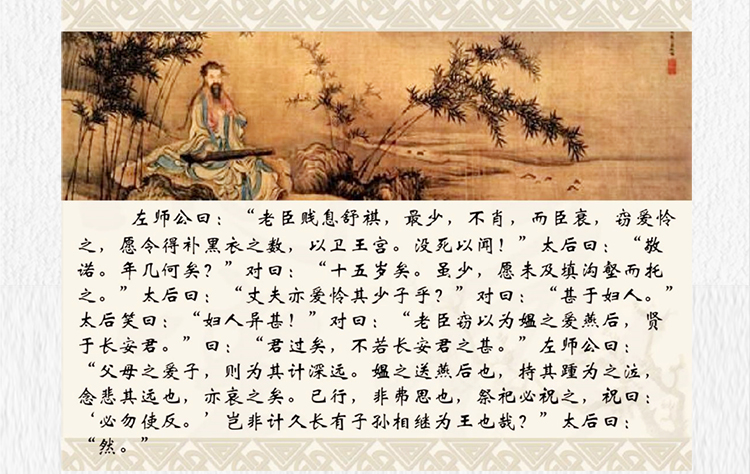 左师公曰：“老臣贱息舒祺，最少，不肖，而臣衰，窃爱怜
之，愿令得补黑衣之数，以卫王宫。没死以闻！”太后曰：“敬
诺。年几何矣？”对曰：“十五岁矣。虽少，愿未及填沟壑而托
之。”太后曰：“丈夫亦爱怜其少子乎？”对曰：“甚于妇人。”
太后笑曰：“妇人异甚！”对曰：“老臣窃以为媪之爱燕后，贤
于长安君。”曰：“君过矣，不若长安君之甚。”左师公曰：
“父母之爱子，则为其计深远。媪之送燕后也，持其踵为之泣，
念悲其远也，亦哀之矣。已行，非弗思也，祭祀必祝之，祝曰：
‘必勿使反。’岂非计久长有子孙相继为王也哉？”太后曰：
“然。”